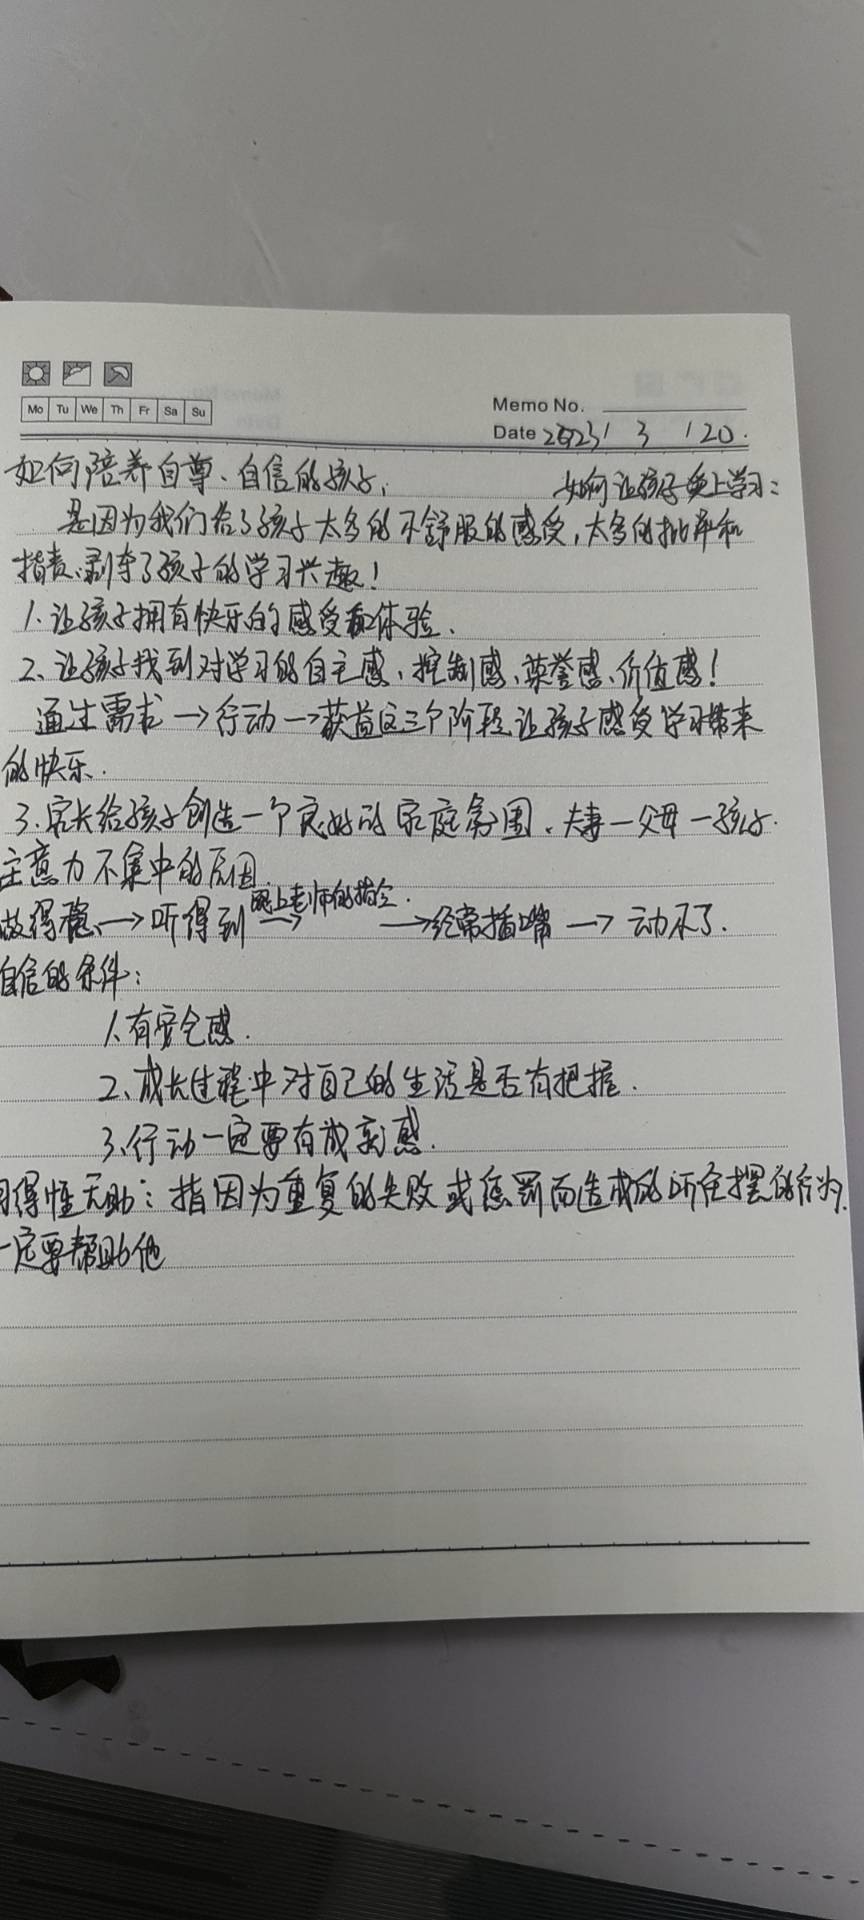 Mo Tu We Th Fr Sa Su
Memo No.
Date 2023 / 3 / 20.
如何陪养自尊、自信的孩子, 如何让孩子爱上学习:
是因为我们给了孩子太多的不舒服的感受,太多的批评和
指责、剥夺了孩子的学习兴趣!
1.让孩子拥有快乐的感受和体验.
2、让孩子找到对学习的自主感、控制感、荣誉感、价值感!
通过需求→行动→获益这三个阶段让孩子感受学习带来
的快乐.
3.家长给孩子创造一个良好的家庭氛围.夫妻一父母一孩子.
注意力不集中的原因.
跟上老师的指令.
得稳→听得到→ →经常插嘴→动不了.
自信的条件:
1.有安全感.
2、成长过程中对自己的生活是否有把握.
3、行动一定要有成就感.
得性无助:指因为重复的失败或惩罚而造成的听任摆的行为.
一定要帮助他